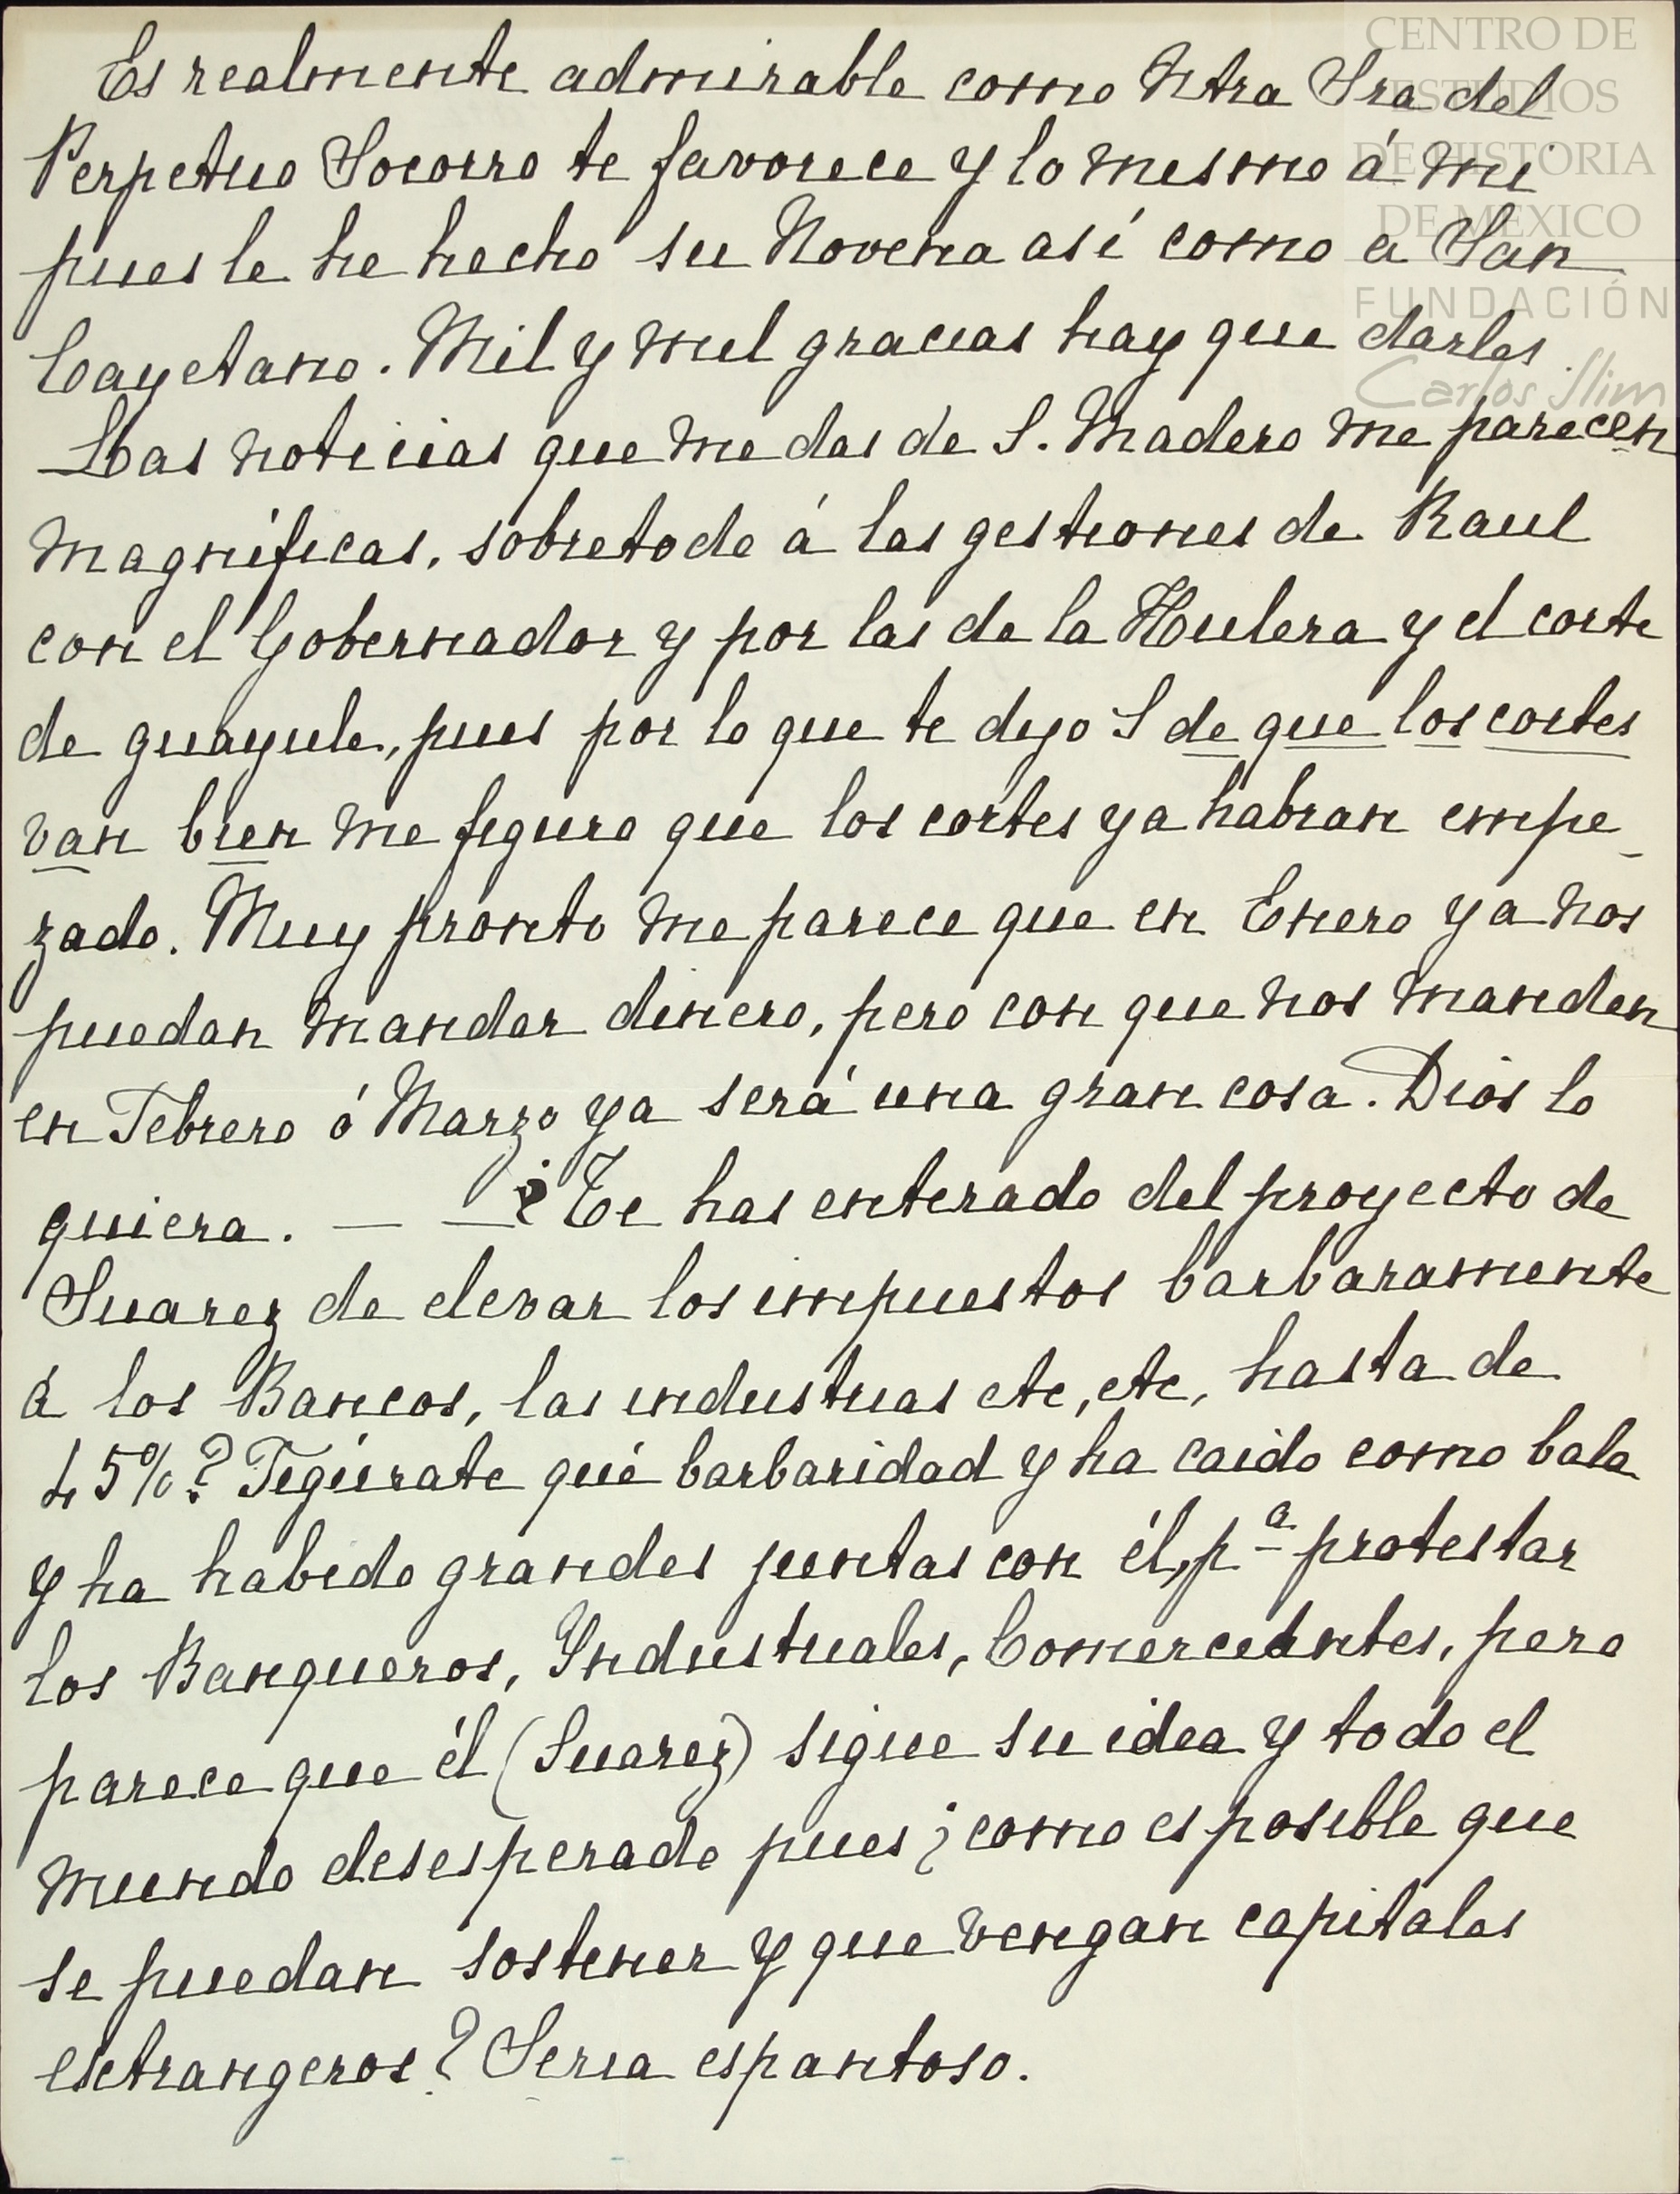 Es realmente admirable como Ntra Sra del
Perpetuo Socorro te favorece y lo mesmo á mi
pues le he hecho su Novena así como a San
Cayetano. Mil y mil gracias hay que darles
Las noticias que me das de S. Madero me parecen
magníficas, sobretodo á las gestiones de Raul
con el Gobernador y por las de la Hulera y el corte
de guayule, pues por lo que te dijo S de que los cortes
van bien me figuro que los cortes ya habran empe_
zado. Muy pronto me parece que en Enero ya nos
puedan mandar dinero, pero con que nos manden
en Febrero ó Marzo ya será una gran cosa. Dios lo
quiera. — — ¿Te has enterado del proyecto de
Suarez de elevar los impuestos barbaramente
á los Bancos, las industrias etc, etc, hasta de
45%? Figúrate qué barbaridad y ha caido como bala
y ha habido grandes juntas con él, pª protestar
los Banqueros, Industriales, Comerciantes, pero
parece que él (Suarez) sigue su idea y todo el
mundo desesperado pues ¿como es posible que
se puedan sostener y que vengan capitales
extrangeros? Seria espantoso.
CENTRO DE
ESTUDIOS
DE HISTORIA
DE MÉXICO
FUNDACIÓN
Carlos Slim